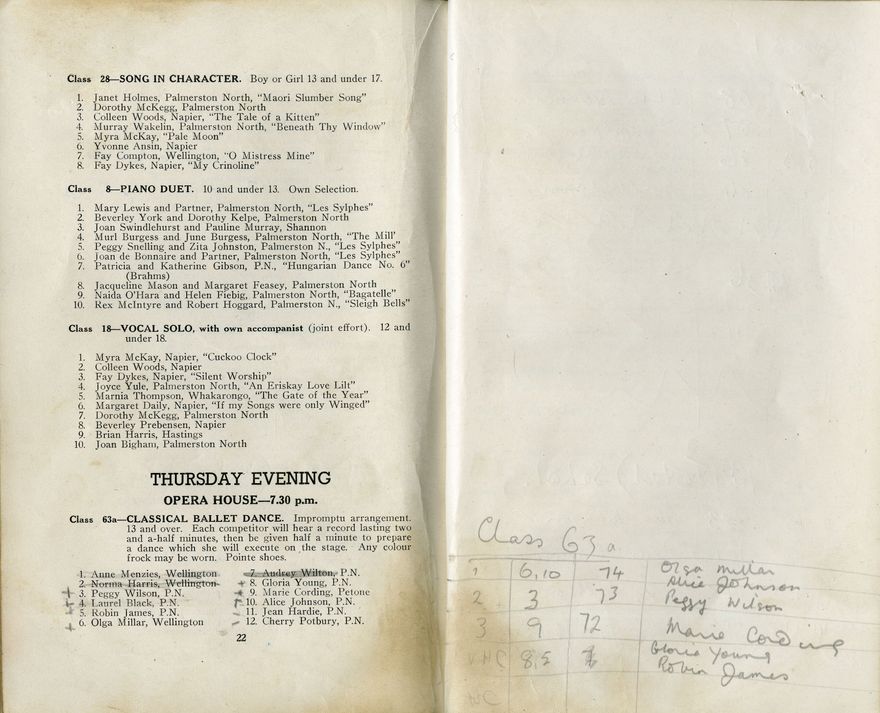 Class 28—SONG IN CHARACTER. Boy or Girl 13 and under 17.
1. Janet Holmes, Palmerston North, "Maori Slumber Song"
2. Dorothy McKegg, Palmerston North
3. Colleen Woods, Napier, "The Tale of a Kitten"
4. Murray Wakelin, Palmerston North, "Beneath Thy Window"
5. Myra McKay, "Pale Moon"
6. Yvonne Ansin, Napier
7. Fay Compton, Wellington, "O Mistress Mine"
8. Fay Dykes, Napier, "My Crinoline"
Class 8—PIANO DUET. 10 and under 13. Own Selection.
1. Mary Lewis and Partner, Palmerston North, "Les Sylphes"
2. Beverley York and Dorothy Kelpe, Palmerston North
3. Joan Swindlehurst and Pauline Murray, Shannon
4. Murl Burgess and June Burgess, Palmerston North, "The Mill'
5. Peggy Snelling and Zita Johnston, Palmerston N., "Les Sylphes"
6. Joan de Bonnaire and Partner, Palmerston North, "Les Sylphes"
7. Patricia and Katherine Gibson, P.N., "Hungarian Dance No. 6"
(Brahms)
8. Jacqueline Mason and Margaret Feasey, Palmerston North
9. Naida O'Hara and Helen Fiebig, Palmerston North, "Bagatelle"
10. Rex McIntyre and Robert Hoggard, Palmerston N., "Sleigh Bells"
Class 18—VOCAL SOLO, with own accompanist (joint effort). 12 and
under 18.
1. Myra McKay, Napier, "Cuckoo Clock"
2. Colleen Woods, Napier
3. Fay Dykes, Napier, "Silent Worship"
4. Joyce Yule, Palmerston North, "An Eriskay Love Lilt"
5. Marnia Thompson, Whakarongo, "The Gate of the Year"
6. Margaret Daily, Napier, "If my Songs were only Winged"
7. Dorothy McKegg, Palmerston North
8. Beverley Prebensen, Napier
9. Brian Harris, Hastings
10. Joan Bigham, Palmerston North
THURSDAY EVENING
OPERA HOUSE—7.30 p.m.
Class 63a—CLASSICAL BALLET DANCE. Impromptu arrangement.
13 and over. Each competitor will hear a record lasting two
and a-half minutes, then be given half a minute to prepare
a dance which she will execute on the stage. Any colour
frock may be worn. Pointe shoes.
1. Anne Menzies, Wellington
2. Norma Harris, Wellington
3. Peggy Wilson, P.N.
4. Laurel Black, P.N.
5. Robin James, P.N.
6. Olga Millar, Wellington
7. Audrey Wilton, P.N.
8. Gloria Young, P.N.
9. Marie Cording, Petone
10. Alice Johnson, P.N.
11. Jean Hardie, P.N.
12. Cherry Potbury, P.N.
22
Class 63a
1 6,10 74 Olga Millar
Alice Johnson
2 3 73 Peggy Wilson
3 9 72 Marie Cording
VHC 8,5 Gloria Young
Robin James
HC